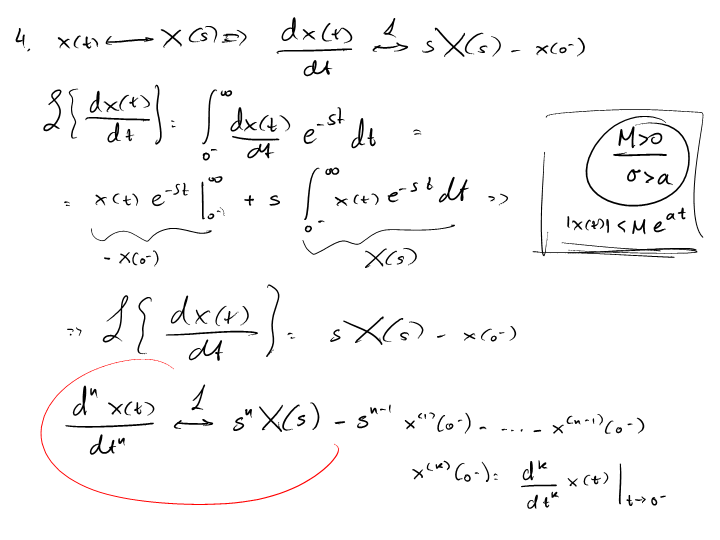 4. x(t) ⟷ X(s) ⇒ dx(t)/dt ⟷^ℒ sX(s) - x(0-)
ℒ{dx(t)/dt} = ∫_{0-}^{∞} dx(t)/dt e^{-st} dt =
= x(t) e^{-st} |_{0-}^{∞} + s ∫_{0-}^{∞} x(t) e^{-st} dt ⇒
- x(0-) X(s)
M>0
σ>a
|x(t)| < M e^{at}
⇒ ℒ{dx(t)/dt} = sX(s) - x(0-)
d^n x(t)/dt^n ⟷^ℒ s^n X(s) - s^{n-1} x^{(1)}(0-) - .... - x^{(n-1)}(0-)
x^{(k)}(0-) = d^k/dt^k x(t) |_{t→0-}